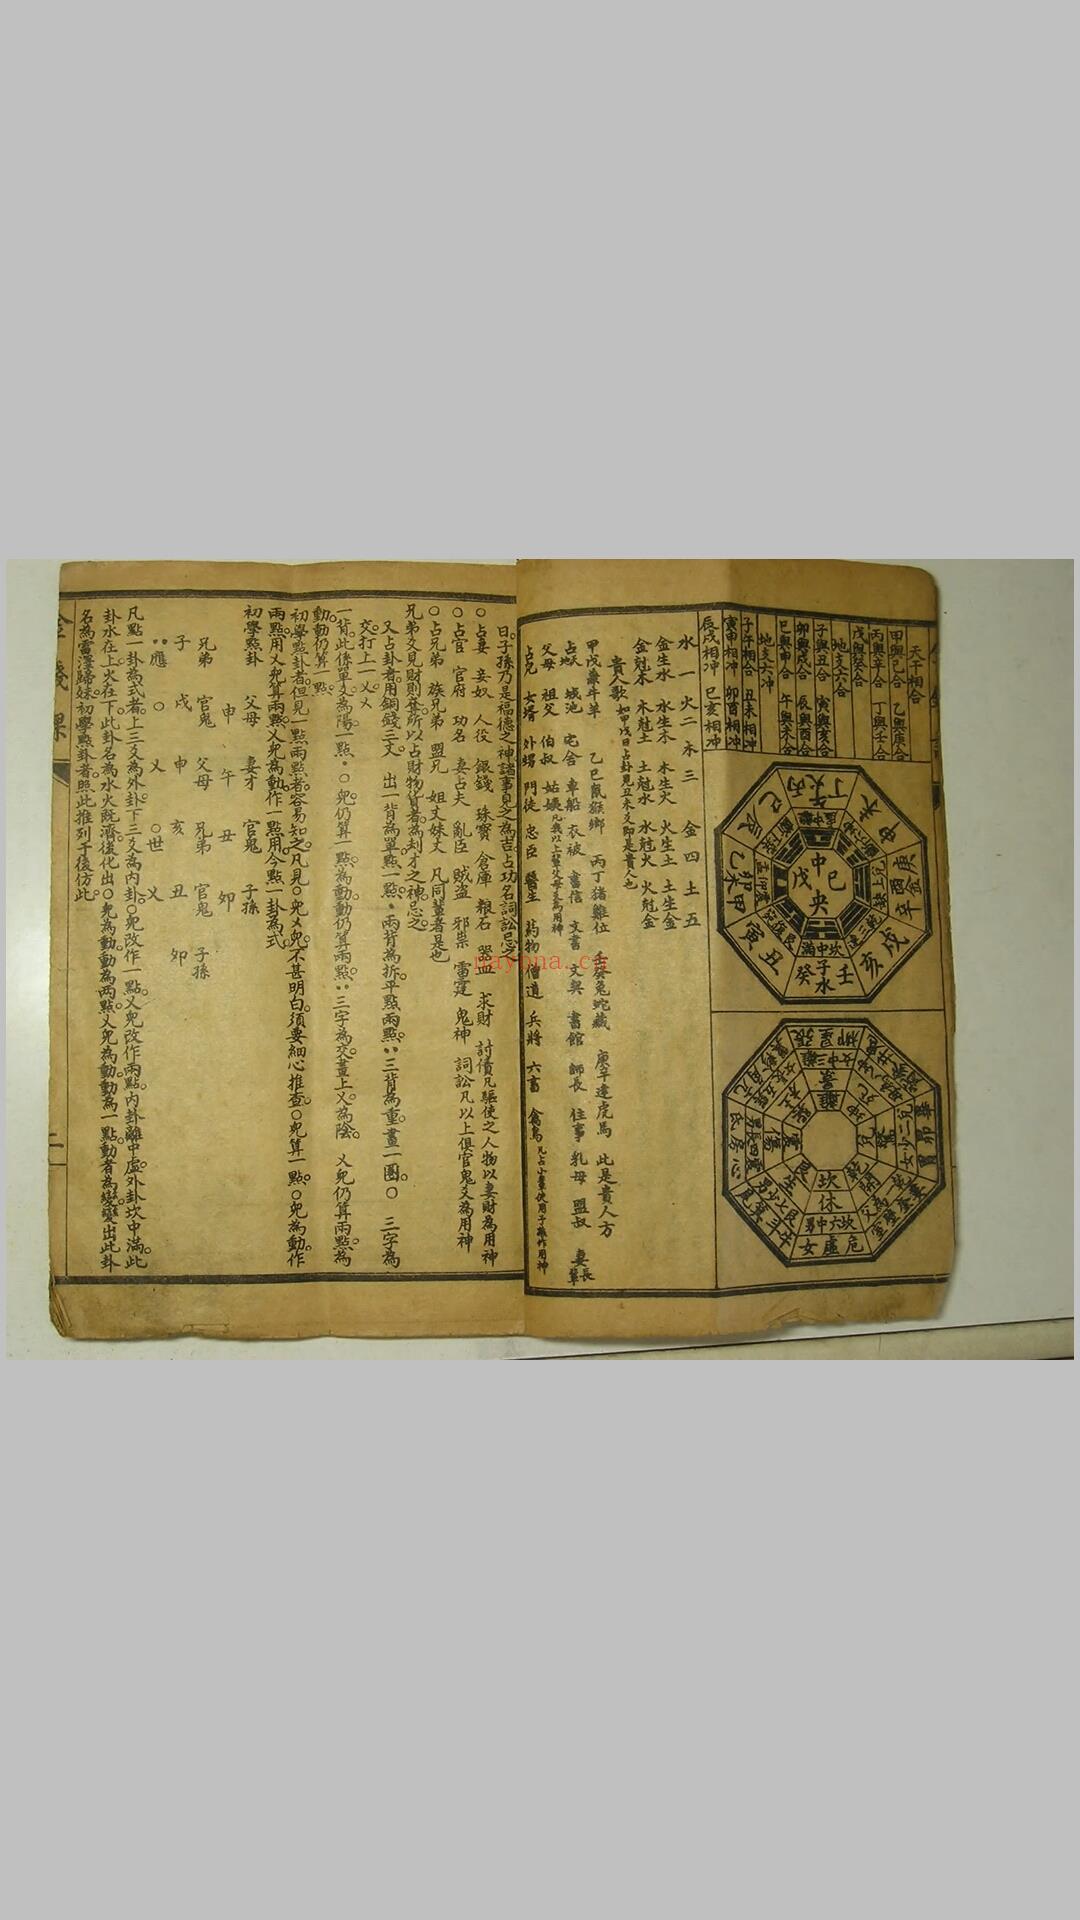 天干相合
甲與己合 乙與庚合
丙與辛合 丁與壬合
戊與癸合
地支六合
子與丑合 寅與亥合
卯與戌合 辰與酉合
巳與申合 午與未合
地支六冲
子午相冲 丑未相冲
寅申相冲 卯酉相冲
辰戌相冲 巳亥相冲
中央
戊己
子水
壬
癸
丑
寅
甲
卯
乙
辰
巳
丁
未
申
庚
酉金
辛
戌
亥
坎中滿
坎
休
坎六中男
女虛危
水一 火二 木三 金四 土五
金生水 水生木 木生火 火生土 土生金
金尅木 木尅土 土尅水 水尅火 火尅金
貴人歌 如甲戊日占卦見丑未爻即是貴人也
甲戊兼牛羊 乙己鼠猴鄉 丙丁猪雞位 壬癸兔蛇藏 庚辛逢虎馬 此是貴人方
占 城池 宅舍 車船 衣被 書信 文書 文契 書館 師長 住事 乳母 盟叔 妻
父母 祖父 伯叔 姑姨 凡與以上輩父母爻為用神
占兒 女壻 外甥 門徒 忠臣 醫生 葯物 僧道 兵將 六畜 禽鳥 凡占小輩使用子孫作用神
日子孫乃是福德之神諸事見之為吉占功名詞訟忌之
○占妻 妾奴 人役 銀錢 珠寶 倉庫 粮石 器皿 求財 討債凡驅使之人物以妻財為用神
○占官 官府 功名 妻占夫 亂臣 賊盗 邪祟 雷霆 鬼神 詞訟凡以上俱官鬼爻為用神
○占兄弟 族兄弟 盟兄 姐丈妹丈 凡同輩者是也
兄弟爻見財則奪所以占財物貨者為刦才之神忌之
又占卦者用銅錢三文 出一背為單點一點、兩背為拆平點兩點、、三背為重畫一圈○ 三字為
交打上一乂乂
一背此係單爻為陽一點、○皃仍算一點為動動仍算兩點、、三字為交畫上乂為陰 乂皃仍算兩點為
動動仍算一點
初學點卦者但見一點兩點者容易知之凡見○皃乂皃不甚明白須要細心推查○皃算一點○皃為動作
兩點用乂皃算兩點乂皃為動作一點用今點一卦為式
初學點卦
父母 妻才 官鬼 子孫
申 午 丑 卯
兄弟 官鬼 父母 兄弟 官鬼 子孫
子 戌 申 亥 丑 卯
、、應 ○ 乂 ○世 乂
凡點一卦為式者上三爻為外卦下三爻為内卦○皃改作一點乂皃改作兩點内卦離中虛外卦坎中滿此
卦水在上火在下此卦名為水火既濟後化出○皃為動動為两點乂皃為動動為一點動者為變變出此卦
名為雷澤歸妹初學點卦者照此推列于後仿此
金錢課
二
nayona.cn